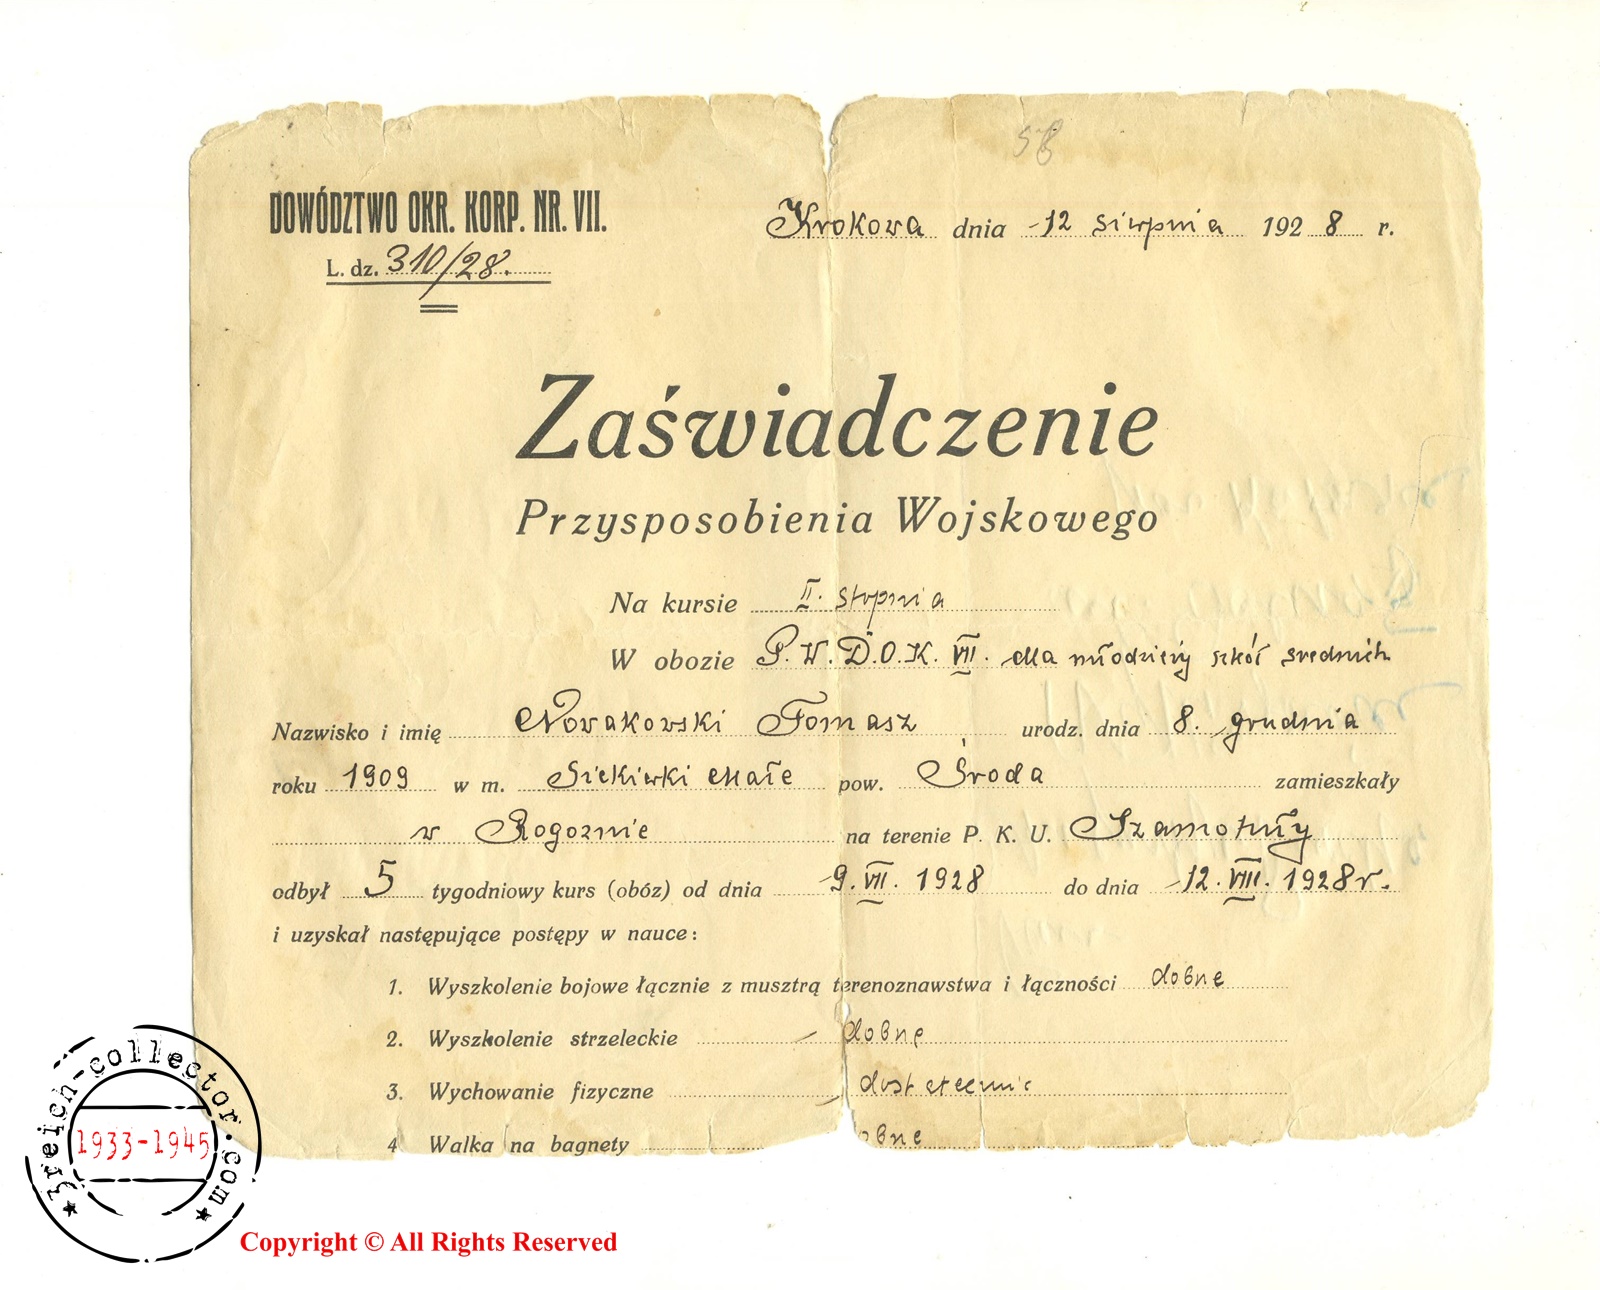 58
DOWÓDZTWO OKR. KORP. NR. VII.
Krokowa dnia 12 sierpnia 1928 r.
L. dz. 310/28.
Zaświadczenie
Przysposobienia Wojskowego
Na kursie II. stopnia
W obozie P.W.D.O.K. VII. dla młodzieży szkół średnich
Nazwisko i imię Nowakowski Tomasz urodz. dnia 8. grudnia
roku 1909 w m. Siekierki Małe pow. Środa zamieszkały
w Rogoznie na terenie P. K. U. Szamotuły
odbył 5 tygodniowy kurs (obóz) od dnia 9. VII. 1928 do dnia 12. VIII. 1928 r.
i uzyskał następujące postępy w nauce:
1. Wyszkolenie bojowe łącznie z musztrą terenoznawstwa i łączności dobre
2. Wyszkolenie strzeleckie dobre
3. Wychowanie fizyczne dostatecznie
4 Walka na bagnety obre
3reich-collector.com
1933-1945
Copyright © All Rights Reserved